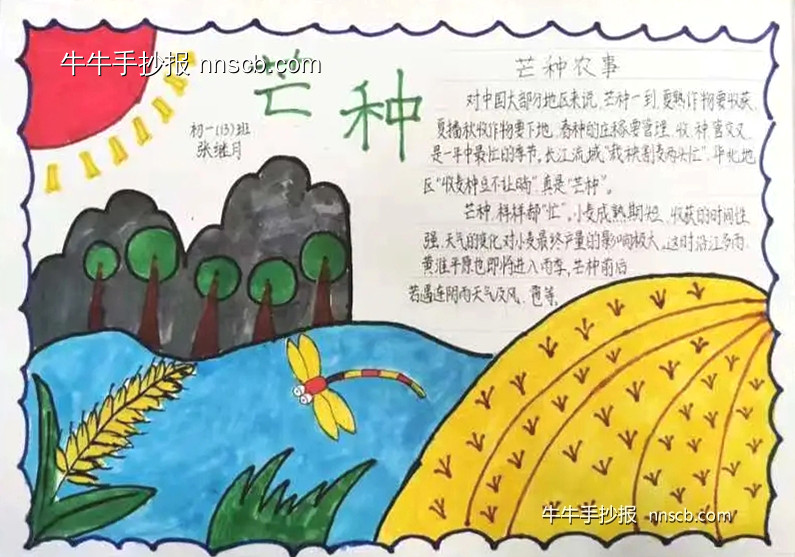 牛牛手抄报 nnscb.com
芒种
初一(13)班
张继月
芒种农事
对中国大部分地区来说,芒种一到,夏熟作物要收获,
夏播秋收作物要下地,春种的庄稼要管理,收、种、管交叉,
是一年中最忙的季节。长江流域“栽秧割麦两头忙”,华北地
区“收麦种豆不让晌”真是“芒种”。
芒种,样样都“忙”。小麦成熟期短,收获的时间性
强,天气的变化对小麦最终产量的影响极大。这时沿江多雨,
黄淮平原也即将进入雨季,芒种前后
若遇连阴雨天气及风、雹等,
牛牛手抄报 nnscb.com